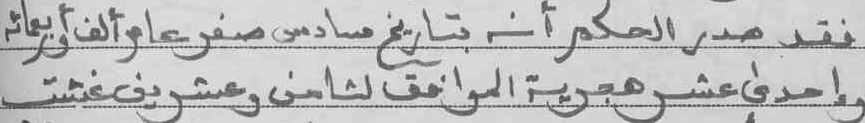 فقد صدر الحكم أنه بتاريخ سادس صفر عام وألف وأربعمائة
وإحدى عشر هجرية الموافق لثامن وعشرين غشت